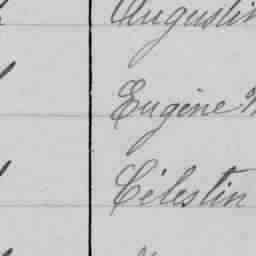 Augustin
Eugène
Célestin